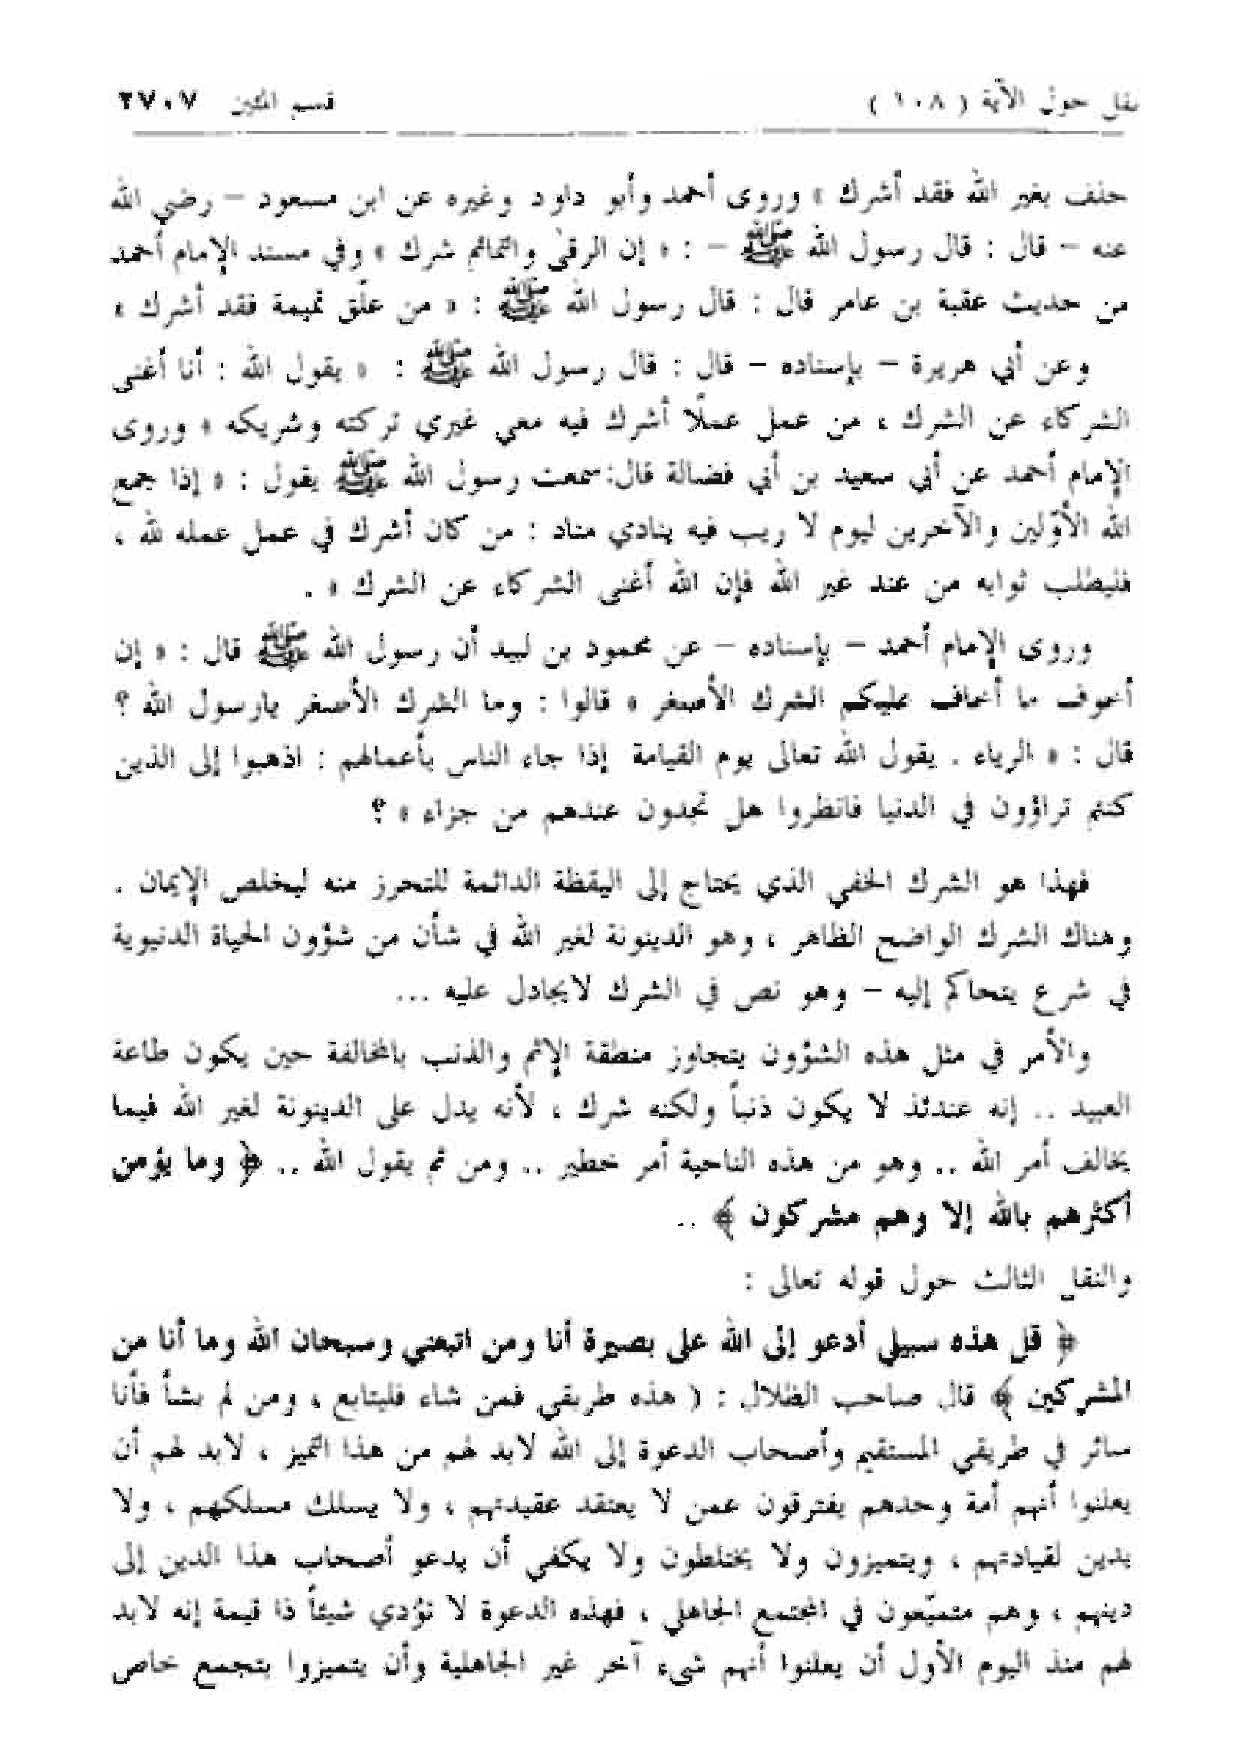 نقل حول الآية ( ١٠٨ ) قسم المئين ٢٧٠٧
حلف بغير الله فقد أشرك » وروى أحمد وأبو داود وغيره عن ابن مسعود – رضي الله
عنه – قال : قال رسول الله ﷺ – : « إن الرقى والتمائم شرك » وفي مسند الإمام أحمد
من حديث عقبة بن عامر قال : قال رسول الله ﷺ : « من علّق تميمة فقد أشرك »
وعن أبي هريرة – بإسناده – قال : قال رسول الله ﷺ : « يقول الله : أنا أغنى
الشركاء عن الشرك ، من عمل عملًا أشرك فيه معي غيري تركته وشريكه » وروى
الإمام أحمد عن أبي سعيد بن أبي فضالة قال: سمعت رسول الله ﷺ يقول : « إذا جمع
الله الأوّلين والآخرين ليوم لا ريب فيه ينادي مناد : من كان أشرك في عمل عمله لله ،
فليطلب ثوابه من عند غير الله فإن الله أغنى الشركاء عن الشرك » .
وروى الإمام أحمد – بإسناده – عن محمود بن لبيد أن رسول الله ﷺ قال : « إن
أخوف ما أخاف عليكم الشرك الأصغر » قالوا : وما الشرك الأصغر يارسول الله ؟
قال : « الرياء . يقول الله تعالى يوم القيامة إذا جاء الناس بأعمالهم : اذهبوا إلى الذين
كنتم تراؤون في الدنيا فانظروا هل تجدون عندهم من جزاء » ؟
فهذا هو الشرك الخفي الذي يحتاج إلى اليقظة الدائمة للتحرز منه ليخلص الإيمان .
وهناك الشرك الواضح الظاهر ، وهو الدينونة لغير الله في شأن من شؤون الحياة الدنيوية
في شرع يتحاكم إليه – وهو نص في الشرك لايجادل عليه ...
والأمر في مثل هذه الشؤون يتجاوز منطقة الإثم والذنب بالمخالفة حين يكون طاعة
العبيد .. إنه عندئذ لا يكون ذنباً ولكنه شرك ، لأنه يدل على الدينونة لغير الله فيما
يخالف أمر الله .. وهو من هذه الناحية أمر خطير .. ومن ثم يقول الله .. ﴿ وما يؤمن
أكثرهم بالله إلا وهم مشركون ﴾ ..
والنقل الثالث حول قوله تعالى :
﴿ قل هذه سبيلي أدعو إلى الله على بصيرة أنا ومن اتبعني وسبحان الله وما أنا من
المشركين ﴾ قال صاحب الظلال : ( هذه طريقي فمن شاء فليتابع ، ومن لم يشأ فأنا
سائر في طريقي المستقيم وأصحاب الدعوة إلى الله لابد لهم من هذا التميز ، لابد لهم أن
يعلنوا أنهم أمة وحدهم يفترقون عمن لا يعتقد عقيدتهم ، ولا يسلك مسلكهم ، ولا
يدين لقيادتهم ، ويتميزون ولا يختلطون ولا يكفي أن يدعو أصحاب هذا الدين إلى
دينهم ، وهم متميّعون في المجتمع الجاهلي ، فهذه الدعوة لا تؤدي شيئاً ذا قيمة إنه لابد
لهم منذ اليوم الأول أن يعلنوا أنهم شيء آخر غير الجاهلية وأن يتميزوا بتجمع خاص